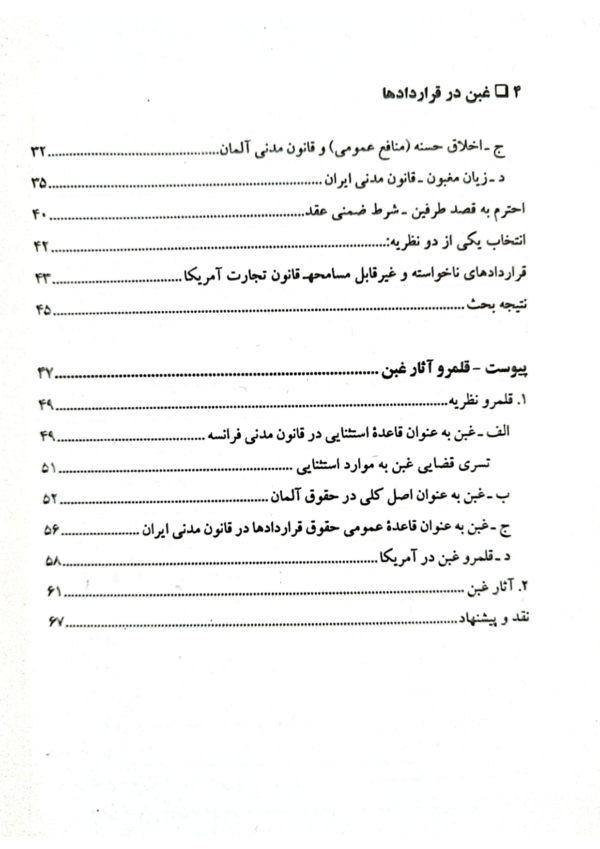 ۴ ❑ غبن در قراردادها
ج ـ اخلاق حسنه (منافع عمومی) و قانون مدنی آلمان ........ ۳۲
د ـ زیان مغبون ـ قانون مدنی ایران ........ ۳۵
احترم به قصد طرفین ـ شرط ضمنی عقد ........ ۴۰
انتخاب یکی از دو نظریه: ........ ۴۲
قراردادهای ناخواسته و غیرقابل مسامحهـ قانون تجارت آمریکا ........ ۴۳
نتیجه بحث ........ ۴۵
پیوست - قلمرو آثار غبن ........ ۴۷
۱. قلمرو نظریه ........ ۴۹
الف ـ غبن به عنوان قاعدهٔ استثنایی در قانون مدنی فرانسه ........ ۴۹
تسری قضایی غبن به موارد استثنایی ........ ۵۱
ب ـ غبن به عنوان اصل کلی در حقوق آلمان ........ ۵۲
ج ـ غبن به عنوان قاعدهٔ عمومی حقوق قراردادها در قانون مدنی ایران ........ ۵۶
د ـ قلمرو غبن در آمریکا ........ ۵۸
۲. آثار غبن ........ ۶۱
نقد و پیشنهاد ........ ۶۷